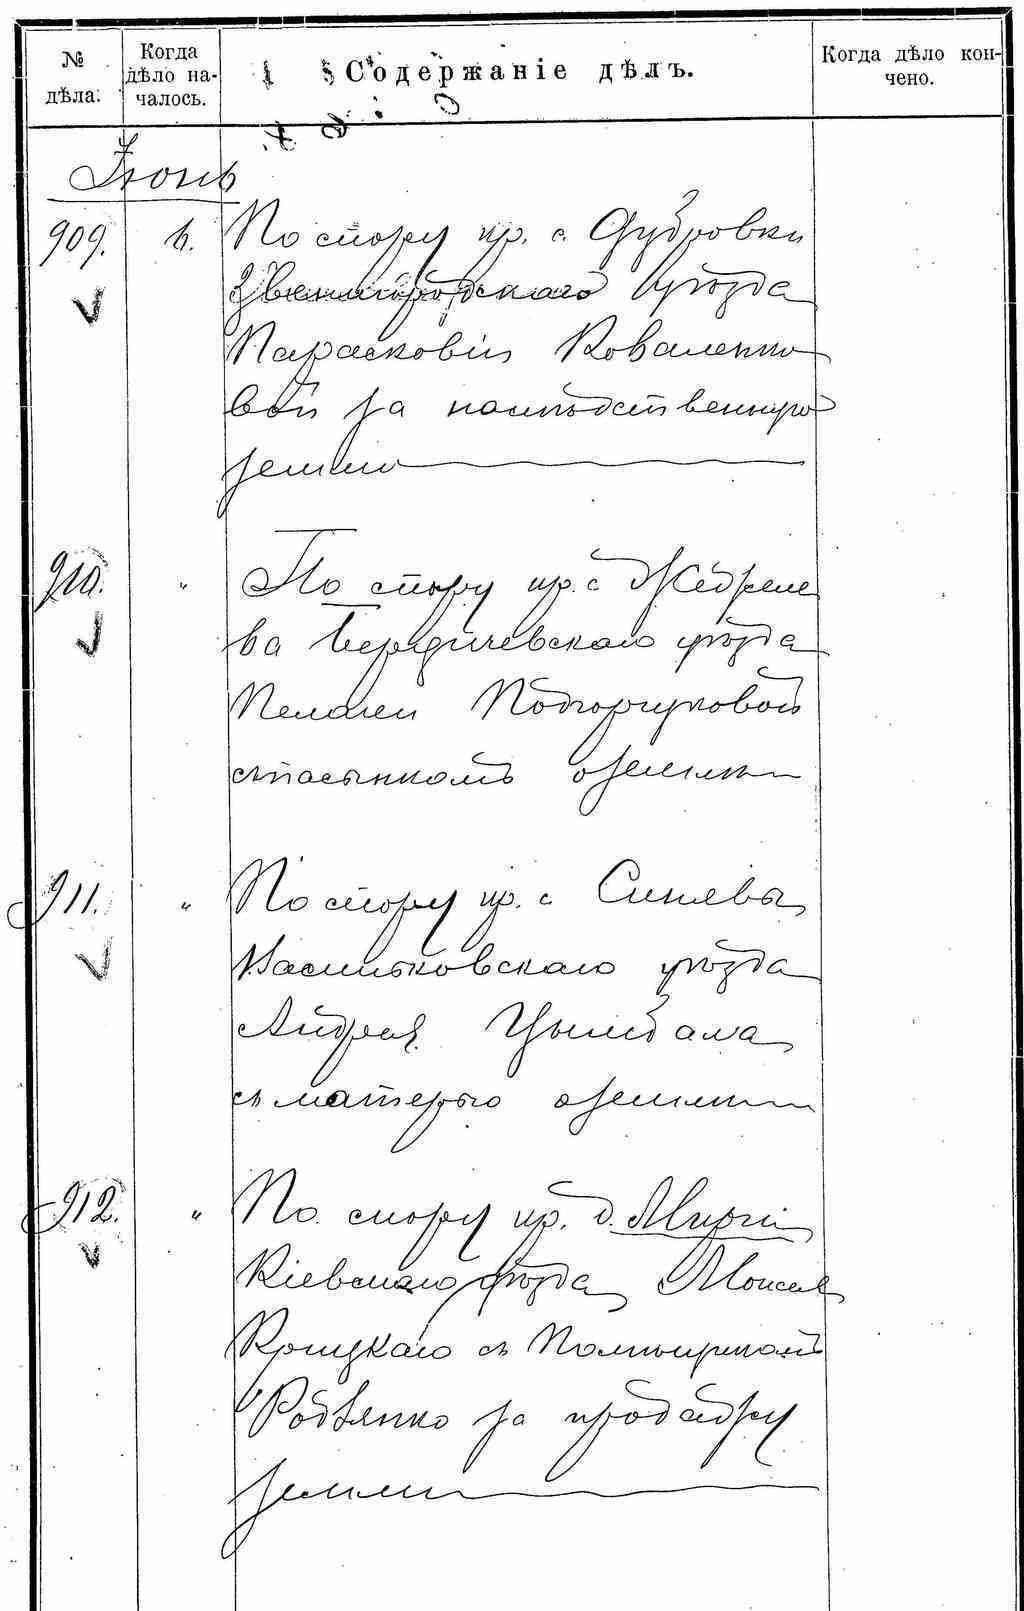 № дѣла.
Когда дѣло на-
чалось.
Содержаніе дѣлъ.
Когда дѣло кон-
чено.
Іюнь
909. 6. По спору кр. с. Дубровки
Звенигородскаго уѣзда
Парасковіи Коваленко
вой за наслѣдственную
землю
910. " По спору кр. с. Жеребиле
ва Бердичевскаго уѣзда
Пелагеи Подгорчуковой
съ пасынкомъ о земли
911. " По спору кр. с. Синявы
Васильковскаго уѣзда
Андрея Цымбала
съ матерью о земли
912. " По спору кр. д.
Кіевскаго уѣзда Моисея
Крицкаго съ
Родзянко за продажу
земли